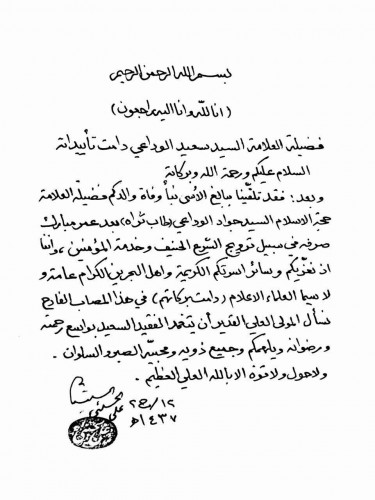 بسم الله الرحمن الرحيم
(انا لله وانا اليه راجعون)
فضيلة العلامة السيد سعيد الوداعي دامت تأييداته
السلام عليكم ورحمة الله وبركاته
وبعد: فقد تلقّينا ببالغ الأسى نبأ وفاة والدكم فضيلة العلامة
حجة الاسلام السيد جواد الوداعي (طاب ثراه) بعد عمر مبارك
صرفه في سبيل ترويج الشرع الحنيف وخدمة المؤمنين، واننا
اذ نعزّيكم وسائر اسرتكم الكريمة واهل البحرين الكرام عامة و
لا سيما العلماء الاعلام (دامت بركاتهم) في هذا المصاب الفادح
نسأل المولى العلي القدير أن يتغمد الفقيد السعيد بواسع رحمته
ورضوانه ويلهمكم وجميع ذويه ومحبيه الصبر والسلوان .
ولا حول ولا قوة الا بالله العلي العظيم .
علي الحسيني السيستاني
٢٥/ع٢/١٢
١٤٣٧هـ